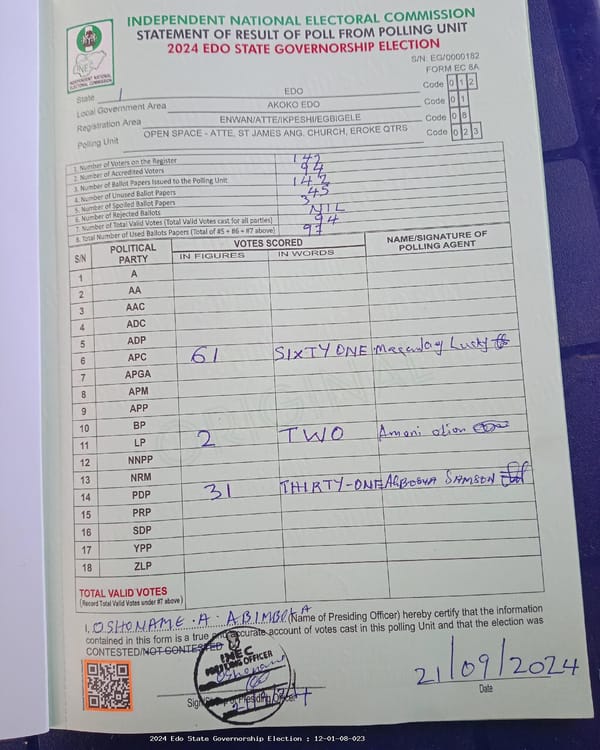 INDEPENDENT NATIONAL ELECTORAL COMMISSION
STATEMENT OF RESULT OF POLL FROM POLLING UNIT
2024 EDO STATE GOVERNORSHIP ELECTION
INDEPENDENT NATIONAL ELECTORAL COMMISSION
S/N: EG/0000182
FORM EC 8A
State EDO Code 0 1 2
Local Government Area AKOKO EDO Code 0 1
Registration Area ENWAN/ATTE/IKPESHI/EGBIGELE Code 0 8
Polling Unit OPEN SPACE - ATTE, ST JAMES ANG. CHURCH, EROKE QTRS Code 0 2 3
1. Number of Voters on the Register 142
2. Number of Accredited Voters 94
3. Number of Ballot Papers Issued to the Polling Unit 142
4. Number of Unused Ballot Papers 45
5. Number of Spoiled Ballot Papers 3
6. Number of Rejected Ballots NIL
7. Number of Total Valid Votes (Total Valid Votes cast for all parties) 94
8. Total Number of Used Ballots Papers (Total of #5 + #6 + #7 above) 97
S/N POLITICAL PARTY VOTES SCORED NAME/SIGNATURE OF POLLING AGENT
IN FIGURES IN WORDS
1 A
2 AA
3 AAC
4 ADC
5 ADP
6 APC 61 SIXTY ONE Lucky
7 APGA
8 APM
9 APP
10 BP
11 LP 2 TWO Amoni
12 NNPP
13 NRM
14 PDP 31 THIRTY-ONE SAMSON
15 PRP
16 SDP
17 YPP
18 ZLP
TOTAL VALID VOTES
(Record Total Valid Votes under #7 above)
I, OSHONAME . A . ABIMBOLA (Name of Presiding Officer) hereby certify that the information
contained in this form is a true and accurate account of votes cast in this polling Unit and that the election was
CONTESTED/NOT CONTESTED
INEC
OFFICER
21/09/2024
Date
2024 Edo State Governorship Election : 12-01-08-023